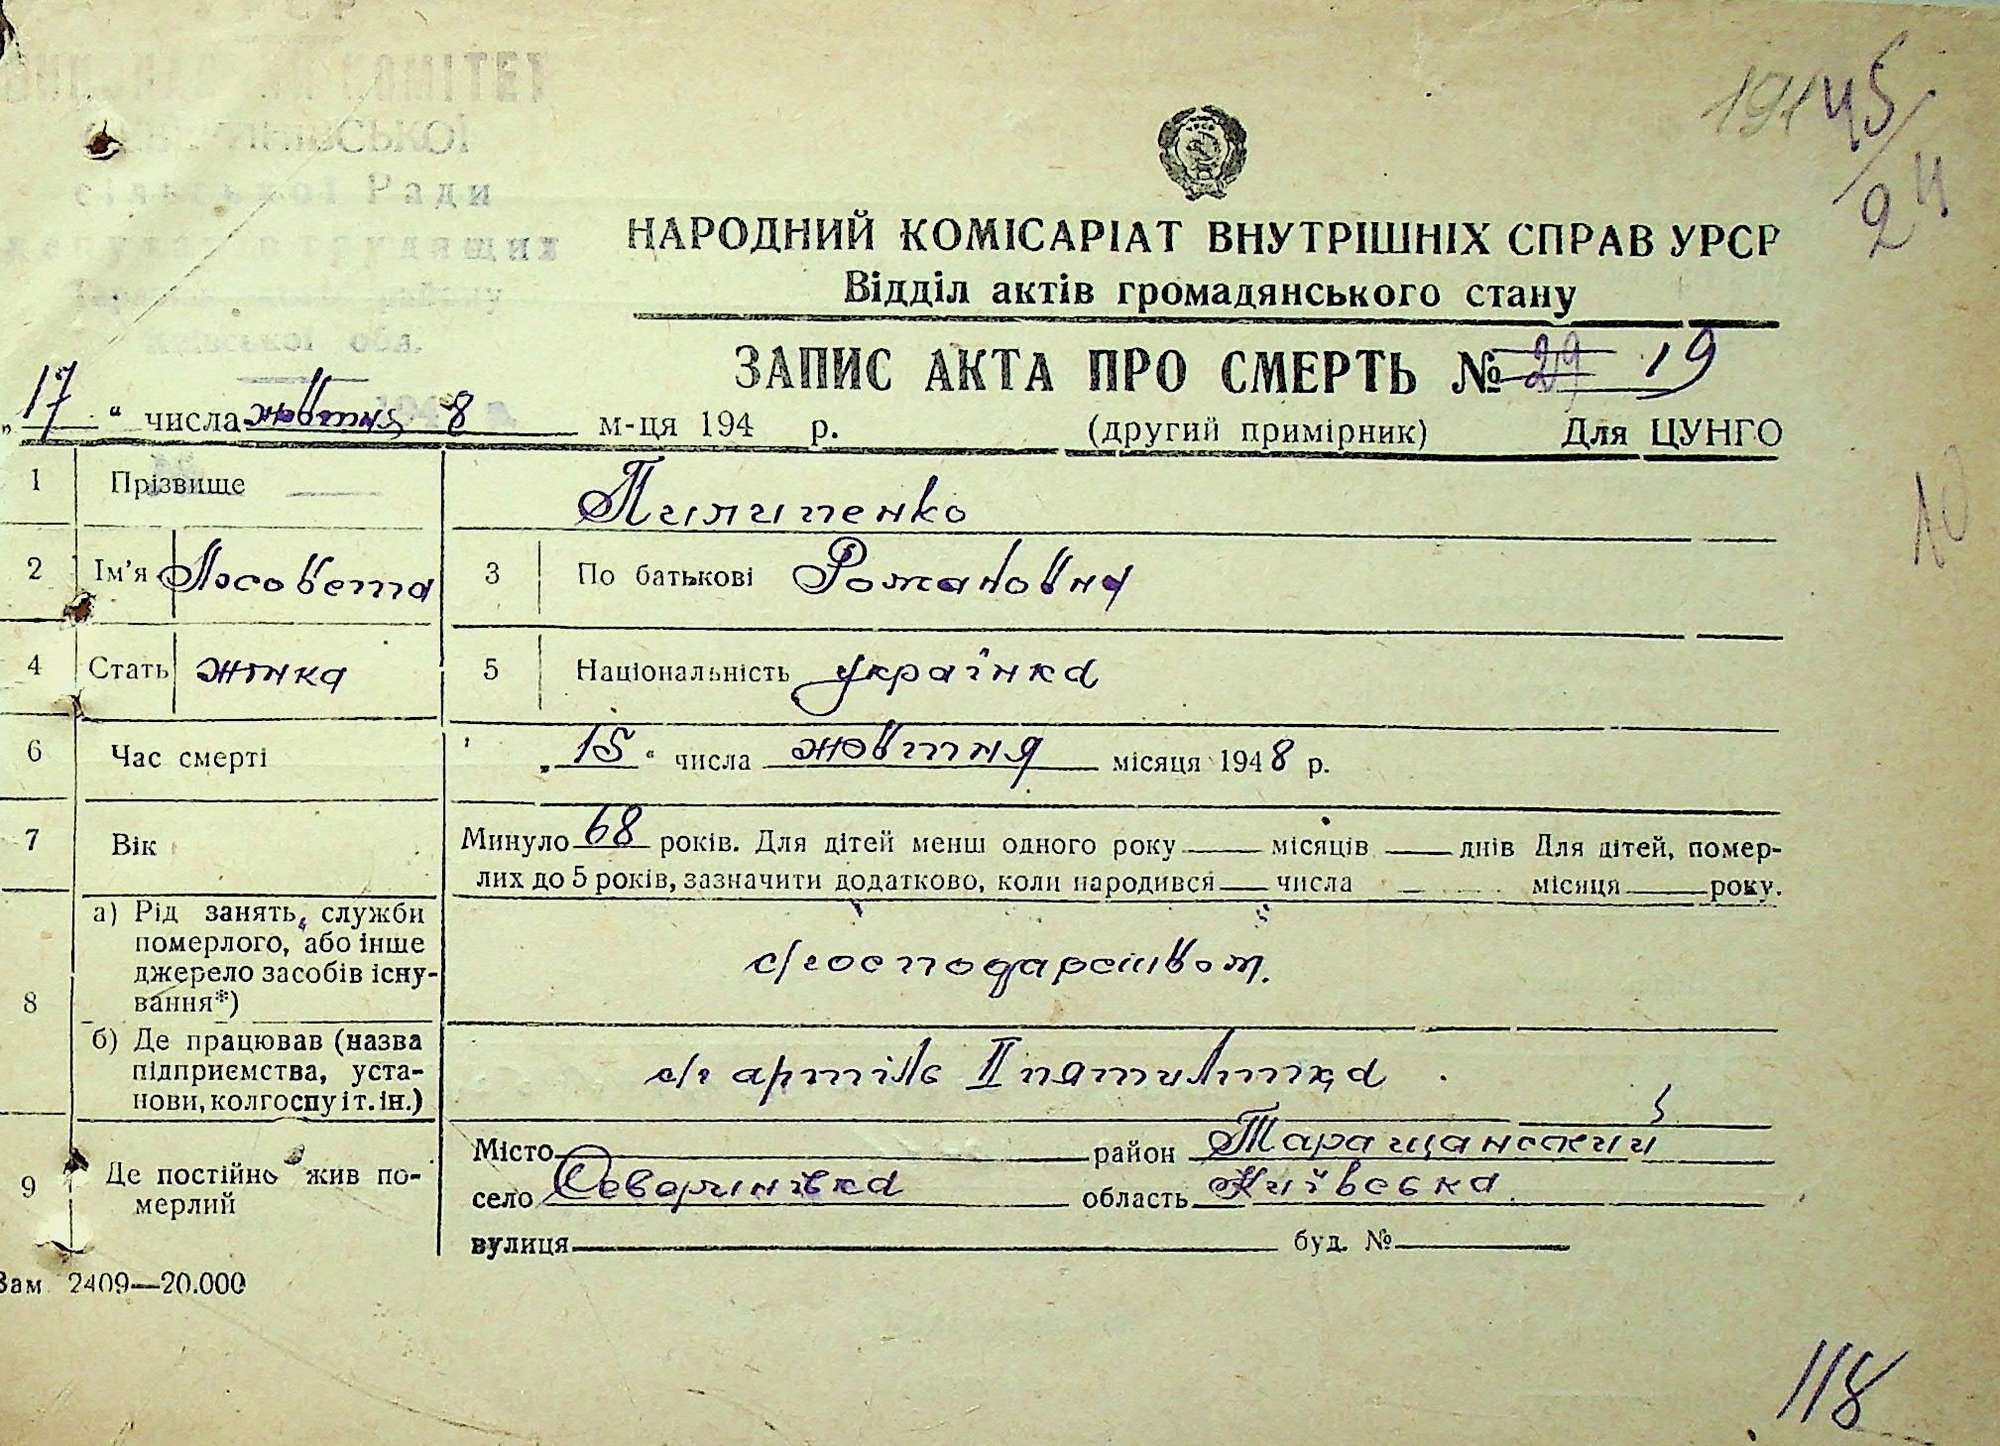 КОМІТЕТ
сільської Ради
району
Київської обл.
194
45
24
НАРОДНИЙ КОМІСАРІАТ ВНУТРІШНІХ СПРАВ УРСР
Відділ актів громадянського стану
ЗАПИС АКТА ПРО СМЕРТЬ № 29 19
„17" числа жовтня 8 м-ця 194 р. (другий примірник) Для ЦУНГО
1 Прізвище Пилипенко
10
2 Ім'я Лісовета 3 По батькові Романовна
4 Стать жінка 5 Національність українка
6 Час смерті „15" числа жовтня місяця 1948 р.
7 Вік Минуло 68 років. Для дітей менш одного року — місяців — днів Для дітей, помер-
лих до 5 років, зазначити додатково, коли народився — числа — місяця — року.
8 а) Рід занять, служби
померлого, або інше
джерело засобів існу-
вання*)
с/господарством.
б) Де працював (назва
підприємства, уста-
нови, колгоспу і т. ін.)
с/г артіль ІІ пятилітка
9 Де постійно жив по-
мерлий
Місто — район Таращанский
село Северинівка область Київська
вулиця — буд. № —
Зам 2409—20.000
118